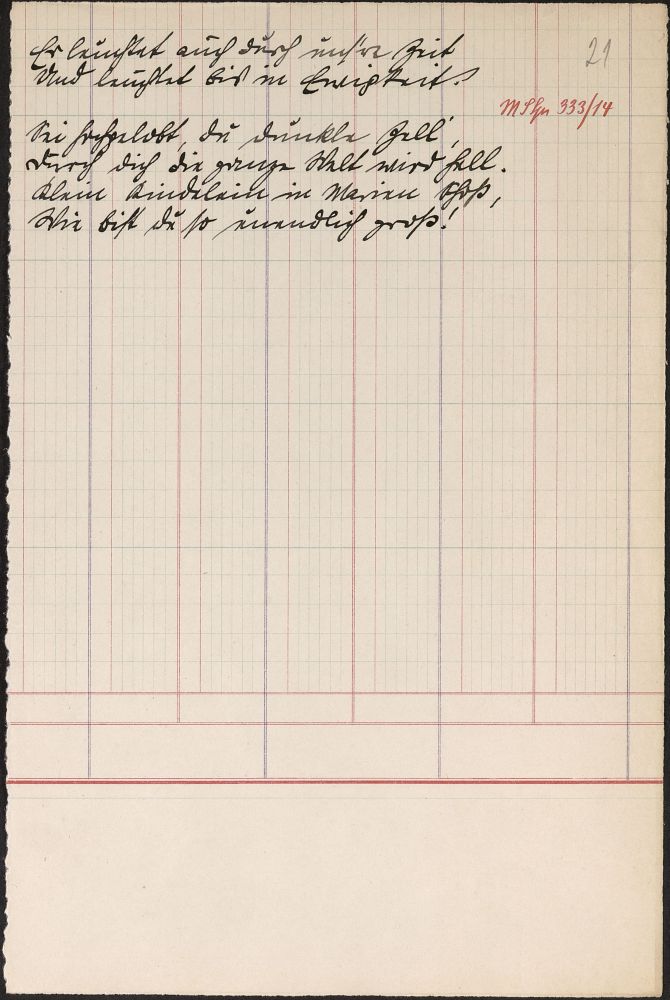 Er leuchtet auch durch uns're Zeit
Und leuchtet bis in Ewigkeit.
21
333/14
Sei hochgelobt, du dunkle Zell',
Durch dich die ganze Welt wird hell.
Klein Kindelein in Marien Schoß,
Wie bist du so unendlich groß!